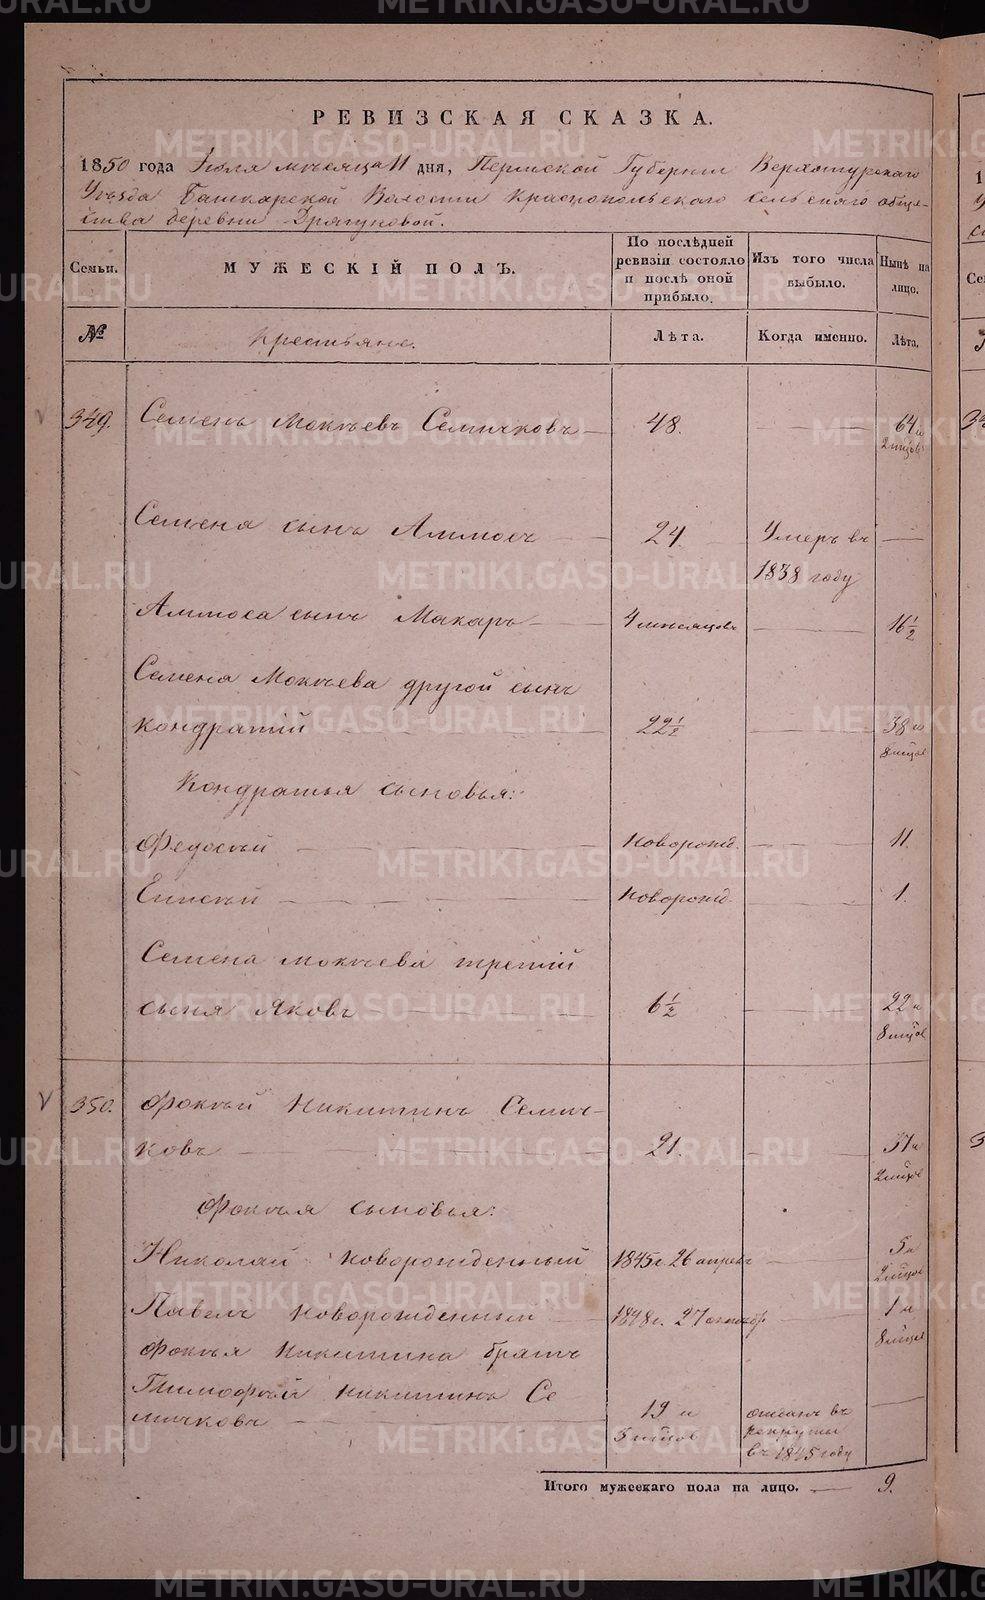 РЕВИЗСКАЯ СКАЗКА.
1850 года Июля месяца 11 дня, Пермской Губернии Верхотурскаго
Уѣзда Башкарской Волости Краснопольскаго Сельскаго обще-
ства деревни Дрягуновой.
Семьи. МУЖЕСКІЙ ПОЛЪ. По послѣдней ревизіи состояло и послѣ оной прибыло. Изъ того числа выбыло. Нынѣ на лицо.
№ Крестьяне. Лѣта. Когда именно. Лѣта.
349. Семенъ Мокѣевъ Семичковъ 48. 64 и
2 мцов
Семена сынъ Аммосъ 24. Умеръ въ
1838 году
Аммоса сынъ Макаръ 4 месяцовъ 16½
Семена Мокѣева другой сынъ
Кондратій 22½ 38 и
8 мцов
Кондратья сыновья:
Федосѣй новорожд. 11.
Елисѣй новорожд. 1.
Семена Мокѣева третій
сынъ Яковъ 6½ 22 и
8 мцов
350. Фокѣй Никитинъ Семич-
ковъ 21. 37 и
2 мцов
Фокѣя сыновья:
Николай новорожденный 1845 г. 26 апреля 5 и
2 мцов
Павелъ новорожденный 1848 г. 27 октябр 1 и
8 мцов
Фокѣя Никитина братъ
Тимофѣй Никитинъ Се
мичковъ 19 и
5 мцов
отданъ въ
рекруты
въ 1845 году
Итого мужескаго пола на лицо. 9.
METRIKI.GASO-URAL.RU